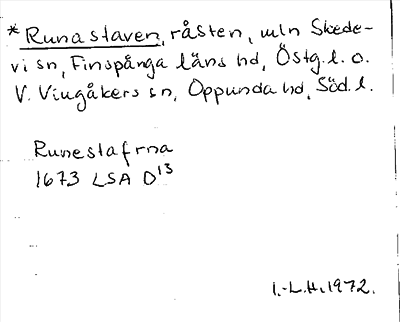 * Runastaven, råsten, mln Skede-
vi sn, Finspånga läns hd, Östg. l. o.
V. Vingåkers sn, Oppunda hd, Söd. l.
Runestafrna
1673 LSA D¹³
I.-L.H. 1972.